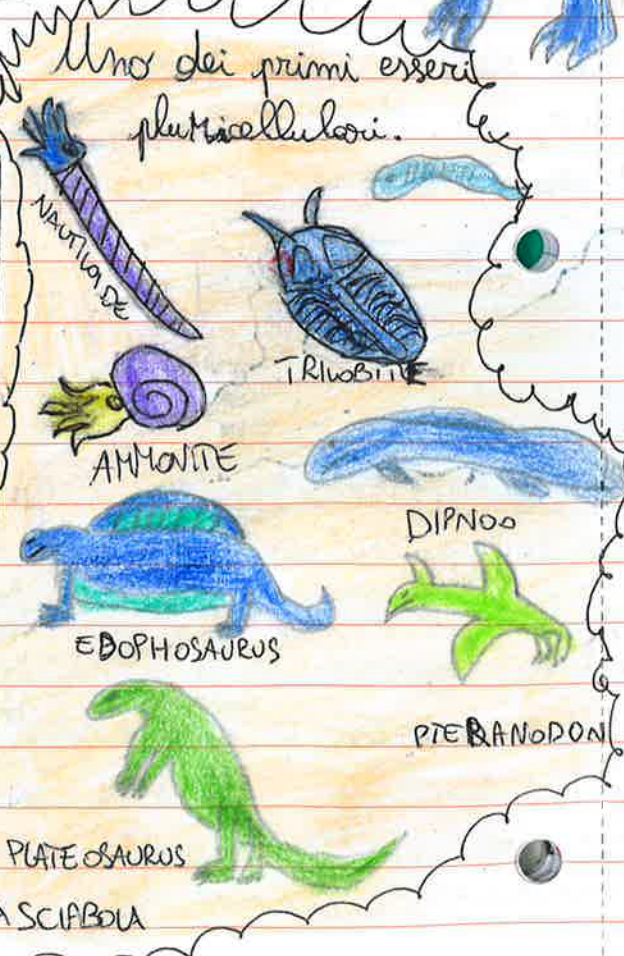 Uno dei primi esseri
pluricellulari.
NAUTILOIDE
TRILOBITE
AMMONITE
DIPNOO
EDOPHOSAURUS
PTERANODON
PLATEOSAURUS
A SCIABOLA